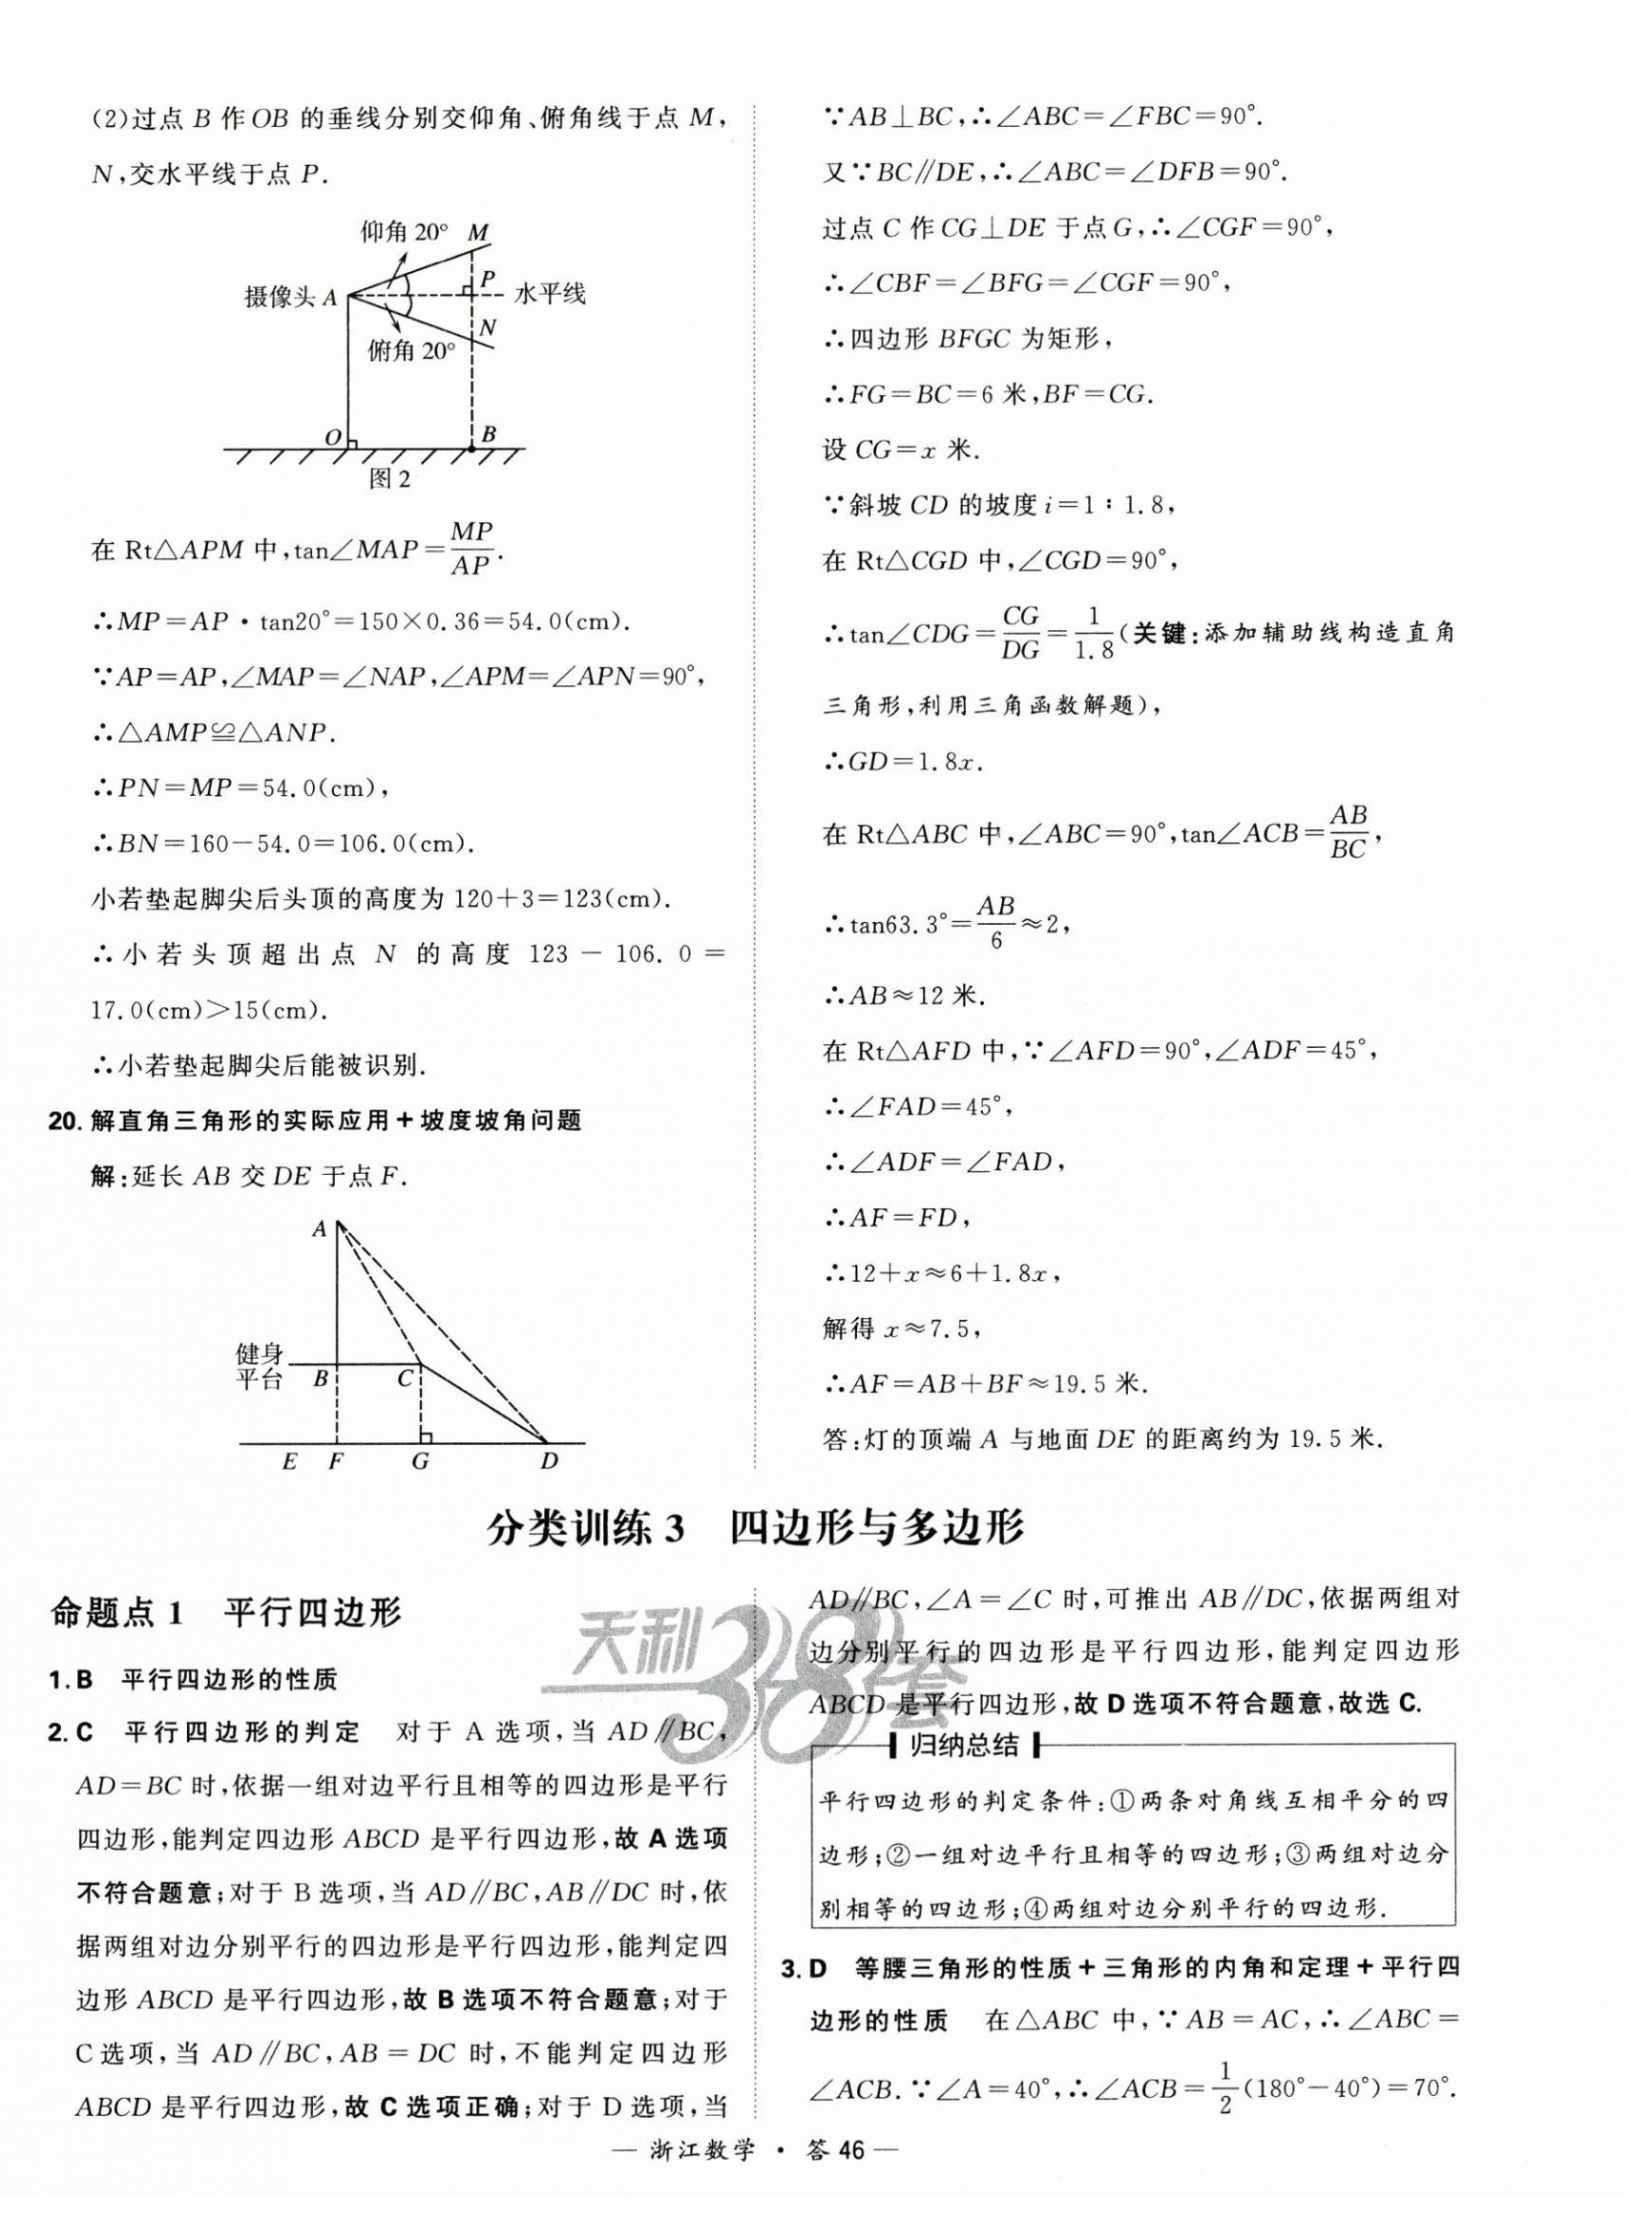 (2)过点 B 作OB 的垂线分别交仰角、俯角线于点 M,
N,交水平线于点 P.
仰角 20° M
摄像头 A P 水平线
N
俯角 20°
O B
图 2
在 Rt△APM 中,tan∠MAP=MP/AP.
∴MP=AP·tan20°=150×0.36=54.0(cm).
∵AP=AP,∠MAP=∠NAP,∠APM=∠APN=90°,
∴△AMP≌△ANP.
∴PN=MP=54.0(cm),
∴BN=160-54.0=106.0(cm).
小若垫起脚尖后头顶的高度为 120+3=123(cm).
∴小若头顶超出点 N 的高度 123-106.0=
17.0(cm)>15(cm).
∴小若垫起脚尖后能被识别.
20. 解直角三角形的实际应用+坡度坡角问题
解:延长 AB 交 DE 于点 F.
A
健身
平台 B C
E F G D
∵AB⊥BC,∴∠ABC=∠FBC=90°.
又∵BC∥DE,∴∠ABC=∠DFB=90°.
过点 C 作 CG⊥DE 于点 G,∴∠CGF=90°,
∴∠CBF=∠BFG=∠CGF=90°,
∴四边形 BFGC 为矩形,
∴FG=BC=6 米,BF=CG.
设 CG=x 米.
∵斜坡 CD 的坡度 i=1∶1.8,
在 Rt△CGD 中,∠CGD=90°,
∴tan∠CDG=CG/DG=1/1.8(关键:添加辅助线构造直角
三角形,利用三角函数解题),
∴GD=1.8x.
在 Rt△ABC 中,∠ABC=90°,tan∠ACB=AB/BC,
∴tan63.3°=AB/6≈2,
∴AB≈12 米.
在 Rt△AFD 中,∵∠AFD=90°,∠ADF=45°,
∴∠FAD=45°,
∴∠ADF=∠FAD,
∴AF=FD,
∴12+x≈6+1.8x,
解得 x≈7.5,
∴AF=AB+BF≈19.5 米.
答:灯的顶端 A 与地面 DE 的距离约为 19.5 米.
分类训练 3 四边形与多边形
命题点 1 平行四边形
1. B 平行四边形的性质
2. C 平行四边形的判定 对于 A 选项,当 AD∥BC,
AD=BC 时,依据一组对边平行且相等的四边形是平行
四边形,能判定四边形 ABCD 是平行四边形,故 A 选项
不符合题意;对于 B 选项,当 AD∥BC,AB∥DC 时,依
据两组对边分别平行的四边形是平行四边形,能判定四
边形 ABCD 是平行四边形,故 B 选项不符合题意;对于
C 选项,当 AD∥BC,AB=DC 时,不能判定四边形
ABCD 是平行四边形,故 C 选项正确;对于 D 选项,当
AD∥BC,∠A=∠C 时,可推出 AB∥DC,依据两组对
边分别平行的四边形是平行四边形,能判定四边形
ABCD 是平行四边形,故 D 选项不符合题意,故选 C.
天利38套
归纳总结
平行四边形的判定条件:①两条对角线互相平分的四
边形;②一组对边平行且相等的四边形;③两组对边分
别相等的四边形;④两组对边分别平行的四边形.
3. D 等腰三角形的性质+三角形的内角和定理+平行四
边形的性质 在△ABC 中,∵AB=AC,∴∠ABC=
∠ACB.∵∠A=40°,∴∠ACB=1/2(180°-40°)=70°.
— 浙江数学·答 46 —